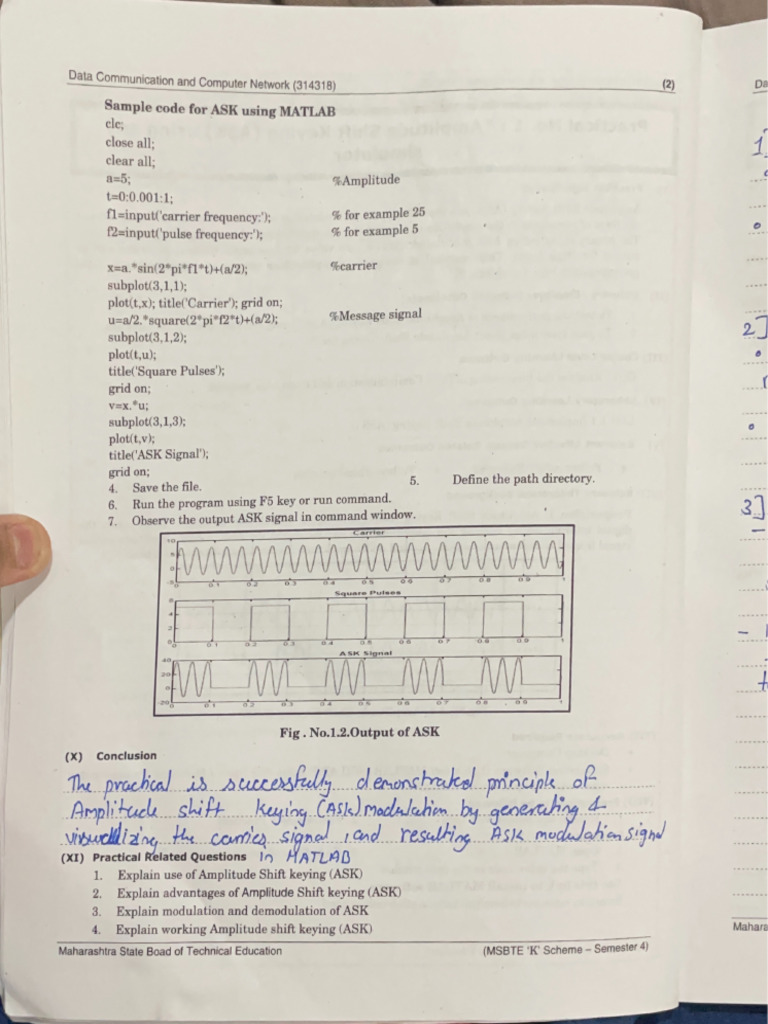 Data Communication and Computer Network (314318) (2)
Sample code for ASK using MATLAB
clc;
close all;
clear all;
a=5; %Amplitude
t=0:0.001:1;
f1=input('carrier frequency:'); % for example 25
f2=input('pulse frequency:'); % for example 5
x=a.*sin(2*pi*f1*t)+(a/2); %carrier
subplot(3,1,1);
plot(t,x); title('Carrier'); grid on;
u=a/2.*square(2*pi*f2*t)+(a/2); %Message signal
subplot(3,1,2);
plot(t,u);
title('Square Pulses');
grid on;
v=x.*u;
subplot(3,1,3);
plot(t,v);
title('ASK Signal');
grid on;
4. Save the file. 5. Define the path directory.
6. Run the program using F5 key or run command.
7. Observe the output ASK signal in command window.
Carrier
10
5
0
-5
0 0.1 0.2 0.3 0.4 0.5 0.6 0.7 0.8 0.9 1
Square Pulses
6
4
2
0
0 0.1 0.2 0.3 0.4 0.5 0.6 0.7 0.8 0.9 1
ASK Signal
40
20
0
-20
0 0.1 0.2 0.3 0.4 0.5 0.6 0.7 0.8 0.9 1
Fig . No.1.2.Output of ASK
(X) Conclusion
The practical is successfully demonstrated principle of
Amplitude shift keying (ASK) modulation by generating &
the carrier signal , and resulting ASK modulation signal
in MATLAB
(XI) Practical Related Questions
1. Explain use of Amplitude Shift keying (ASK)
2. Explain advantages of Amplitude Shift keying (ASK)
3. Explain modulation and demodulation of ASK
4. Explain working Amplitude shift keying (ASK)
Maharashtra State Boad of Technical Education (MSBTE 'K' Scheme – Semester 4)
1]
2]
3]
Mahara